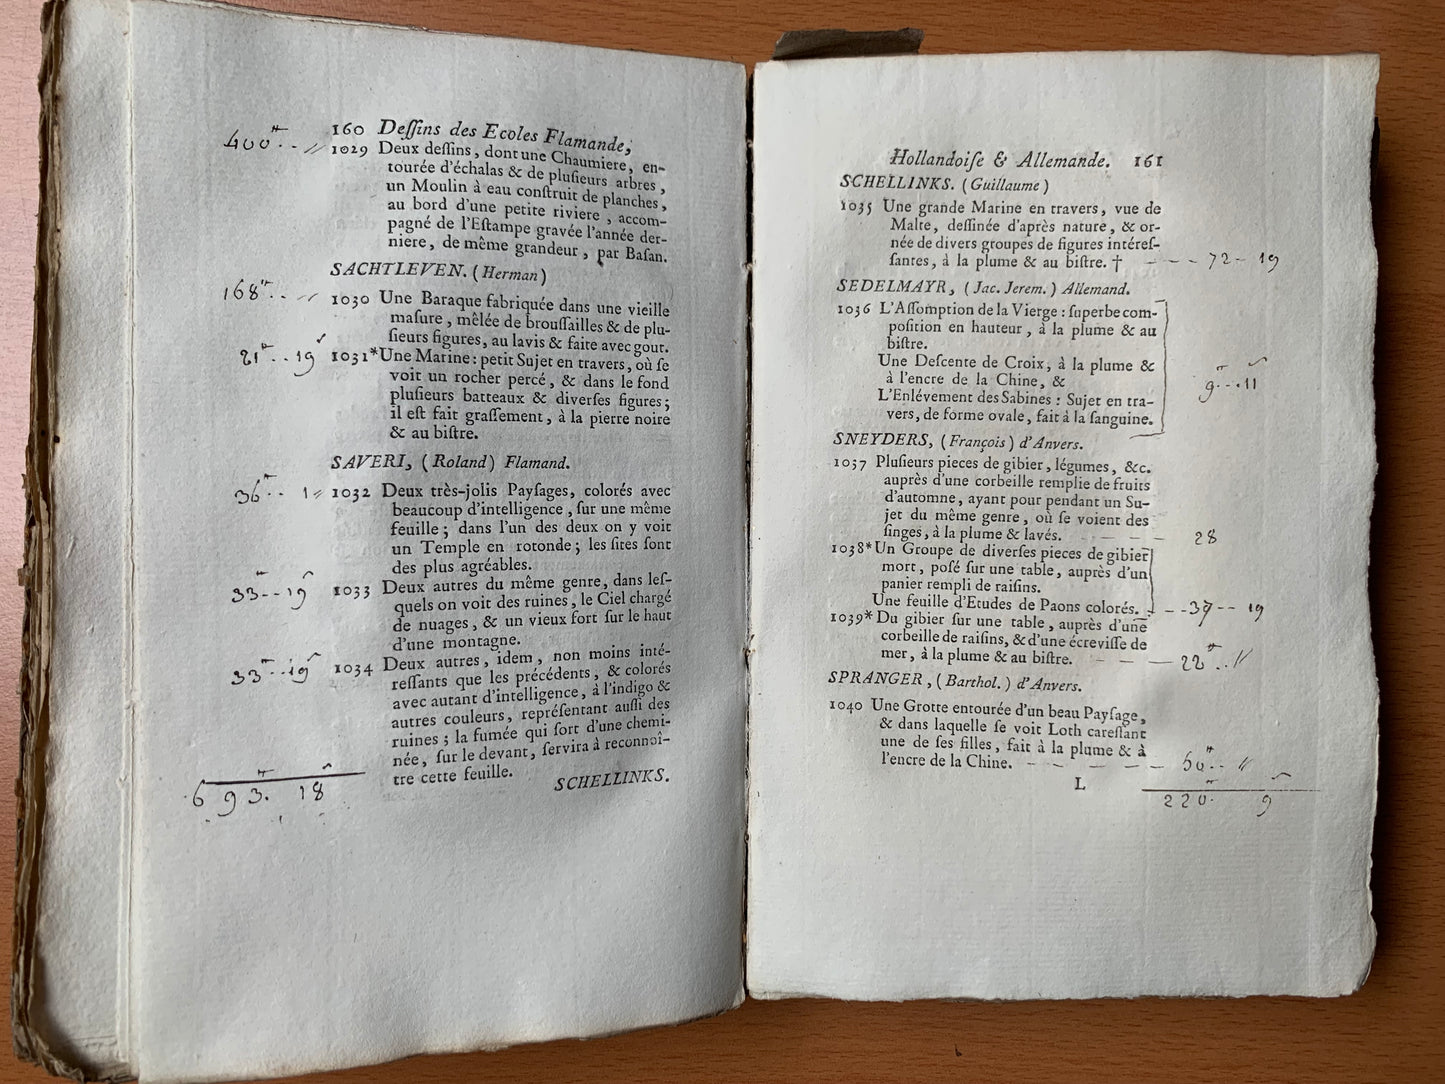 160 Deſſins des Ecoles Flamande,
400 ₶ .. - //
1029 Deux deſſins, dont une Chaumiere, en-
tourée d'échalas & de pluſieurs arbres,
un Moulin à eau conſtruit de planches,
au bord d'une petite riviere, accom-
pagné de l'Eſtampe gravée l'année der-
niere, de même grandeur, par Baſan.
SACHTLEVEN. (Herman)
168 ₶ .. - //
1030 Une Baraque fabriquée dans une vieille
maſure, mêlée de brouſſailles & de plu-
ſieurs figures, au lavis & faite avec gout.
21 ₶ .. 19
1031* Une Marine: petit Sujet en travers, où ſe
voit un rocher percé, & dans le fond
pluſieurs batteaux & diverſes figures;
il eſt fait graſſement, à la pierre noire
& au biſtre.
SAVERI, (Roland) Flamand.
36 ₶ .. 1 //
1032 Deux très-jolis Payſages, colorés avec
beaucoup d'intelligence, ſur une même
feuille; dans l'un des deux on y voit
un Temple en rotonde; les ſites ſont
des plus agréables.
33 ₶ -- 19
1033 Deux autres du même genre, dans leſ-
quels on voit des ruines, le Ciel chargé
de nuages, & un vieux fort ſur le haut
d'une montagne.
33 ₶ .. 19
1034 Deux autres, idem, non moins inté-
reſſants que les précédents, & colorés
avec autant d'intelligence, à l'indigo &
autres couleurs, repréſentant auſſi des
ruines; la fumée qui ſort d'une chemi-
née, ſur le devant, ſervira à reconnoî-
tre cette feuille.
693 ₶. 18
SCHELLINKS.
Hollandoiſe & Allemande. 161
SCHELLINKS. (Guillaume)
1035 Une grande Marine en travers, vue de
Malte, deſſinée d'après nature, & or-
née de divers groupes de figures intéreſ-
ſantes, à la plume & au biſtre. † - - - 72 - 19
SEDELMAYR, (Jac. Jerem.) Allemand.
1036 L'Aſſomption de la Vierge: ſuperbe com-
poſition en hauteur, à la plume & au
biſtre.
Une Deſcente de Croix, à la plume &
à l'encre de la Chine, &
L'Enlévement des Sabines: Sujet en tra-
vers, de forme ovale, fait à la ſanguine.
9 ₶ ... 11
SNEYDERS, (François) d'Anvers.
1037 Pluſieurs pieces de gibier, légumes, &c.
auprès d'une corbeille remplie de fruits
d'automne, ayant pour pendant un Su-
jet du même genre, où ſe voient des
ſinges, à la plume & lavés. - - - - 28
1038* Un Groupe de diverſes pieces de gibier
mort, poſé ſur une table, auprès d'un
panier rempli de raiſins.
Une feuille d'Etudes de Paons colorés. - - - 37 -- 19
1039* Du gibier ſur une table, auprès d'une
corbeille de raiſins, & d'une écreviſſe de
mer, à la plume & au biſtre. - - - 22 ₶ .. //
SPRANGER, (Barthol.) d'Anvers.
1040 Une Grotte entourée d'un beau Payſage,
& dans laquelle ſe voit Loth careſſant
une de ſes filles, fait à la plume & à
l'encre de la Chine. - - - - - 50 ₶ .. //
L
220 ₶. 9